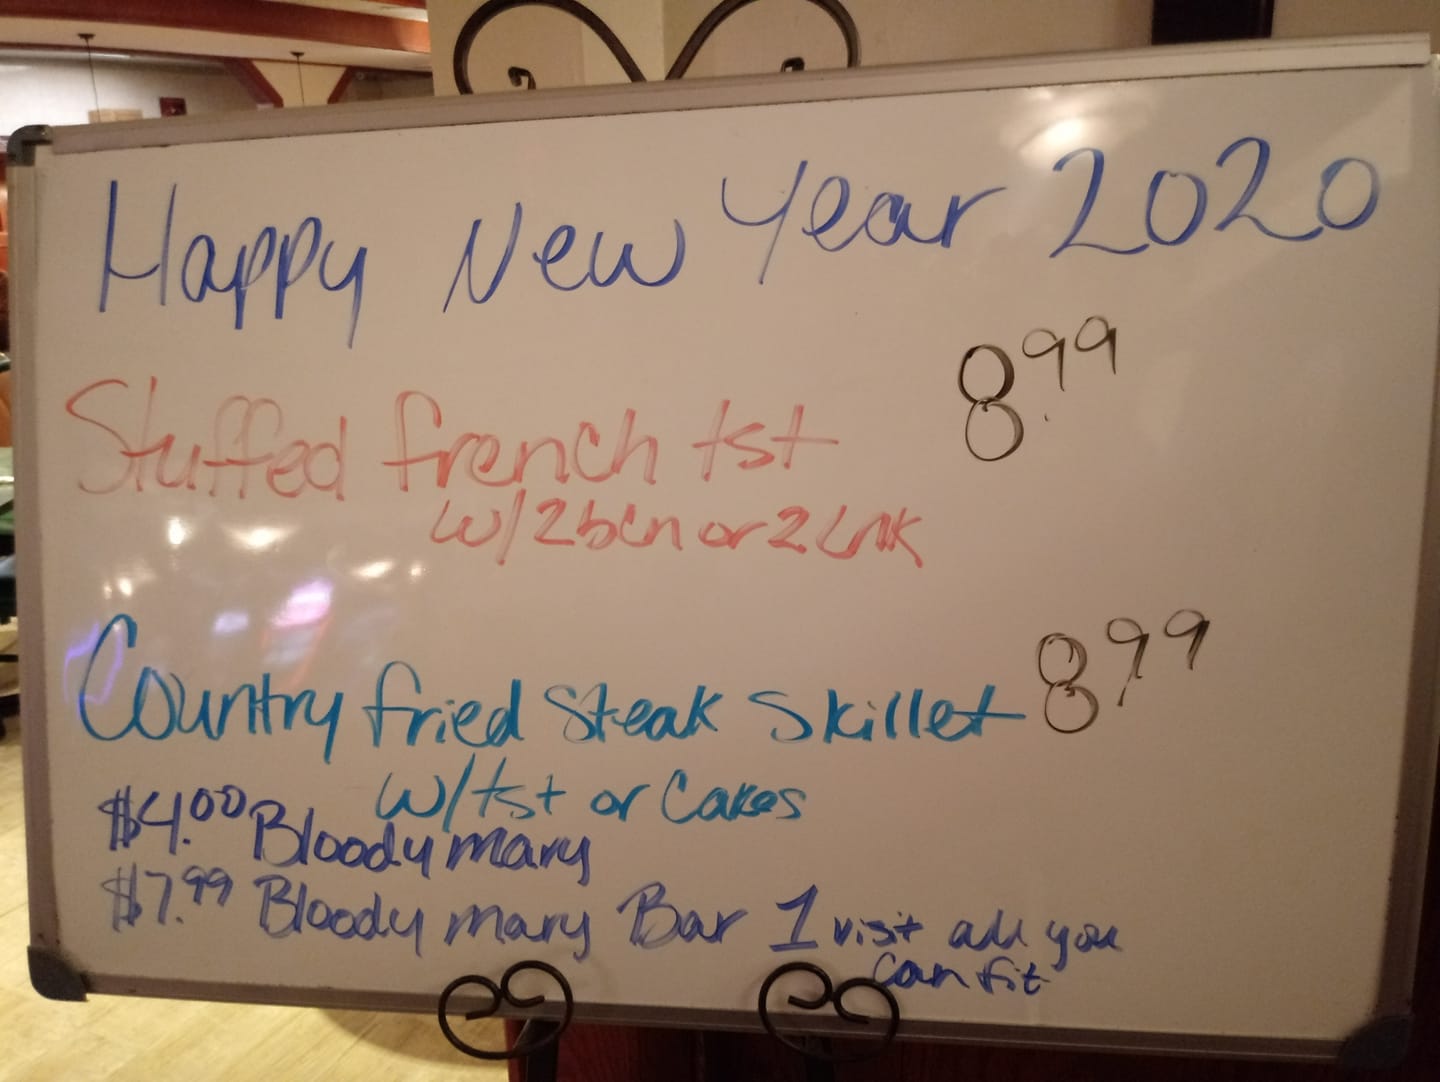 Happy New Year 2020
Stuffed french tst 8.99
w/2bcn or 2 Lnk
Country fried Steak Skillet 8.99
w/tst or Cakes
$4.00 Bloody mary
$7.99 Bloody mary Bar 1 visit all you
can fit